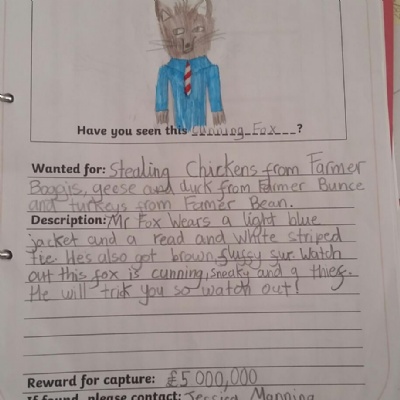 Have you seen this cunning Fox?
Wanted for: Stealing Chickens from Farmer
Boggis, geese and duck from Farmer Bunce
and turkeys from Famer Bean.
Description: Mr Fox Wears a light blue
jacket and a read and white striped
tie. Hes also got brown, fluffy fur. Watch
out this fox is cunning, sneaky and a thief.
He will trick you so watch out!
Reward for capture: £5 000,000
If found, please contact: Jessica Manning